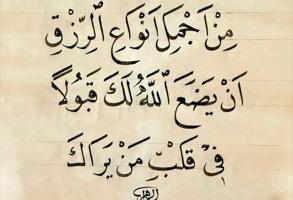 مِنْ اَجْمَلِ اَنْوَاعِ الرِّزْقِ
اَنْ يَضَعَ اللّٰهُ لَكَ قَبُولًا
فِىْ قَلْبِ مَنْ يَرَاكَ